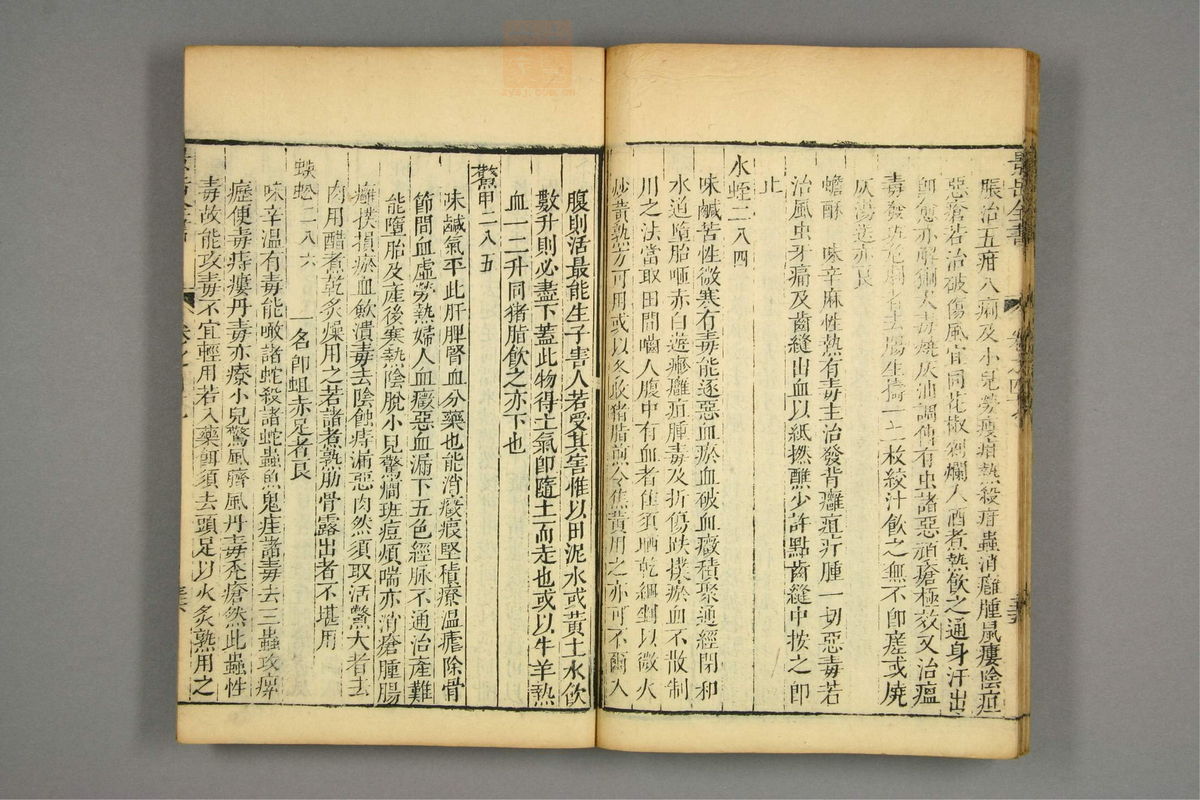 脹治五疳八痢及小兒勞瘦疳熱殺疳蟲消癰腫鼠瘻陰疽
惡瘡若治破傷風宜同花椒剉爛入酒煮熱飲之通身汗出
卽愈亦解猘犬毒燒灰油調傅有虫諸惡頑瘡極效又治瘟
毒發斑危劇以去腸生搗一二枚絞汁飲之無不卽瘥或燒
灰湯送亦良
蟾酥 味辛麻性熱有毒主治發背癰疽疔腫一切惡毒若
治風虫牙痛及齒縫出血以紙撚蘸少許點齒縫中按之卽
止
水蛭二八四
味鹹苦性微寒有毒能逐惡血瘀血破血癥積聚通經閉和
水道墮胎咂赤白遊疹癰疽腫毒及折傷跌撲瘀血不散制
用之法當取田間嚙人腹中有血者佳須晒乾細剉以微火
炒黃熟方可用或以冬收猪脂煎令焦黃用之亦可不爾入
腹則活最能生子害人若受其害惟以田泥水或黃土水飲
數升則必盡下蓋此物得土氣卽隨土而走也或以牛羊熱
血一二升同猪脂飲之亦下也
鱉甲二八五
味鹹氣平此肝脾腎血分藥也能消癥瘕堅積療溫瘧除骨
節間血虛勞熱婦人血癥惡血漏下五色經脉不通治產難
能墮胎及產後寒熱陰脫小兒驚癎斑痘煩喘亦消瘡腫腸
癰撲損瘀血斂潰毒去陰蝕痔漏惡肉然須取活鱉大者去
肉用醋煮乾炙燥用之若諸煮熟肋骨露出者不堪用
蜈蚣二八六 一名卽蛆赤足者良
味辛溫有毒能啖諸蛇殺諸蛇蟲魚鬼疰諸毒去三蟲攻瘰
癧便毒痔瘻丹毒亦療小兒驚風臍風丹毒禿瘡然此蟲性
毒故能攻毒不宜輕用若入藥餌須去頭足以火炙熟用之